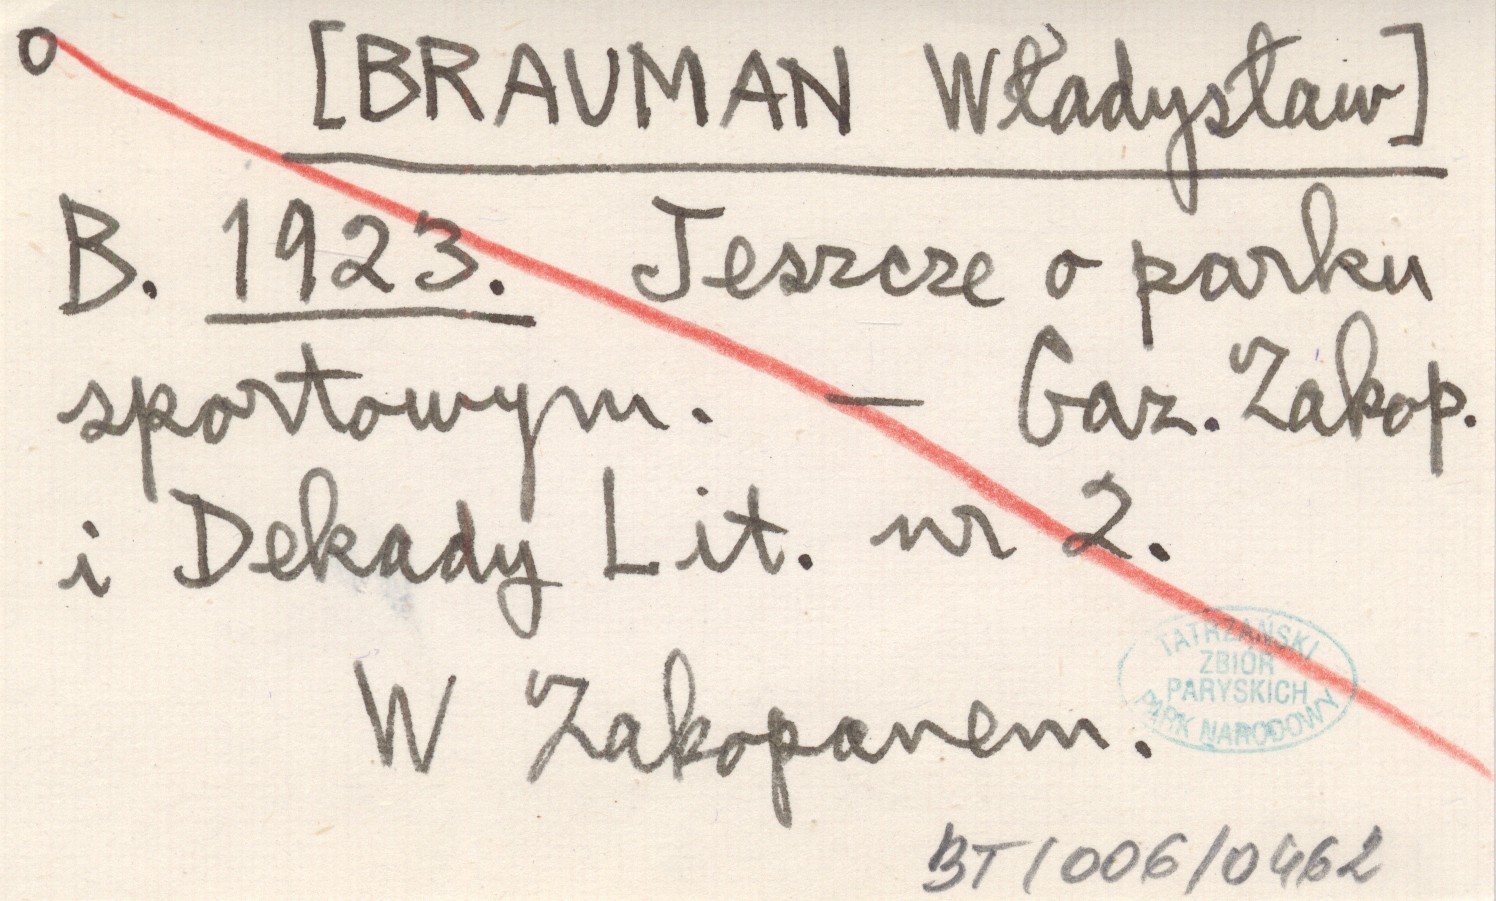 o [BRAUMAN Władysław]
B. 1923. Jeszcze o parku
sportowym. — Gaz. Zakop.
i Dekady Lit. nr 2.
W Zakopanem.
TATRZAŃSKI
ZBIÓR
PARYSKICH
PARK NARODOWY
BT/006/0462